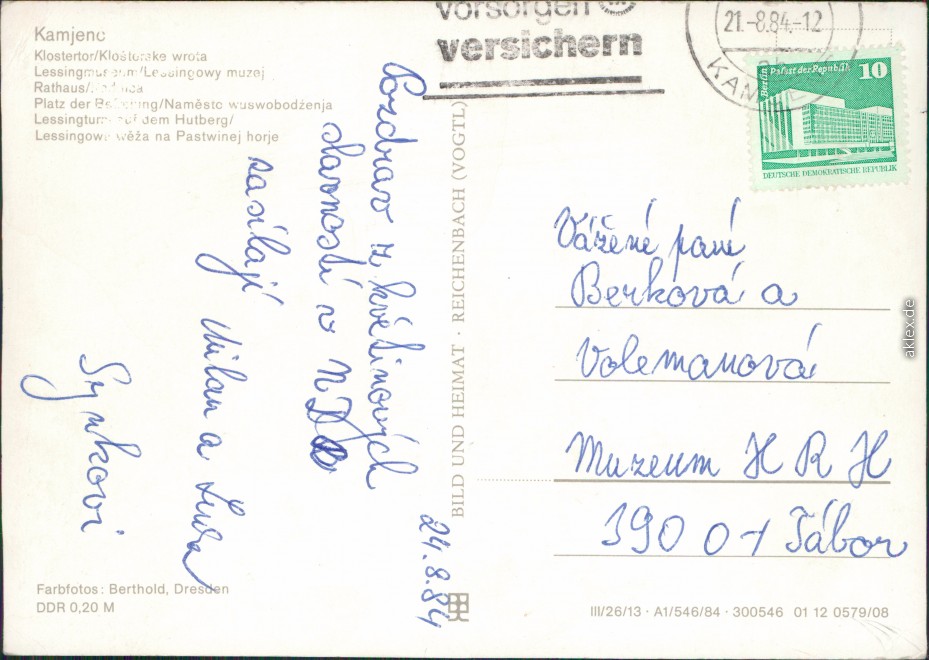 Kamjenc
Klostertor/Klóšterske wrota
Lessingmuseum/Lessingowy muzej
Rathaus/
Platz der Befreiung/Naměsto wuswobodźenja
Lessingturm auf dem Hutberg/
Lessingowa wěža na Pastwinej horje
vorsorgen
versichern
21.-8.84.-12
Berlin Palast der Republik 10
DEUTSCHE DEMOKRATISCHE REPUBLIK
Pozdrav z květinových
slavností v NDR
zasílají
Milan a Luba
Synkovi
24.8.84
BILD UND HEIMAT · REICHENBACH (VOGTL)
Vážené paní
Berková a
Volemanová
Muzeum H R H
390 01 Tábor
Farbfotos: Berthold, Dresden
DDR 0,20 M
III/26/13 · A1/546/84 · 300546 01 12 0579/08
aklex.de